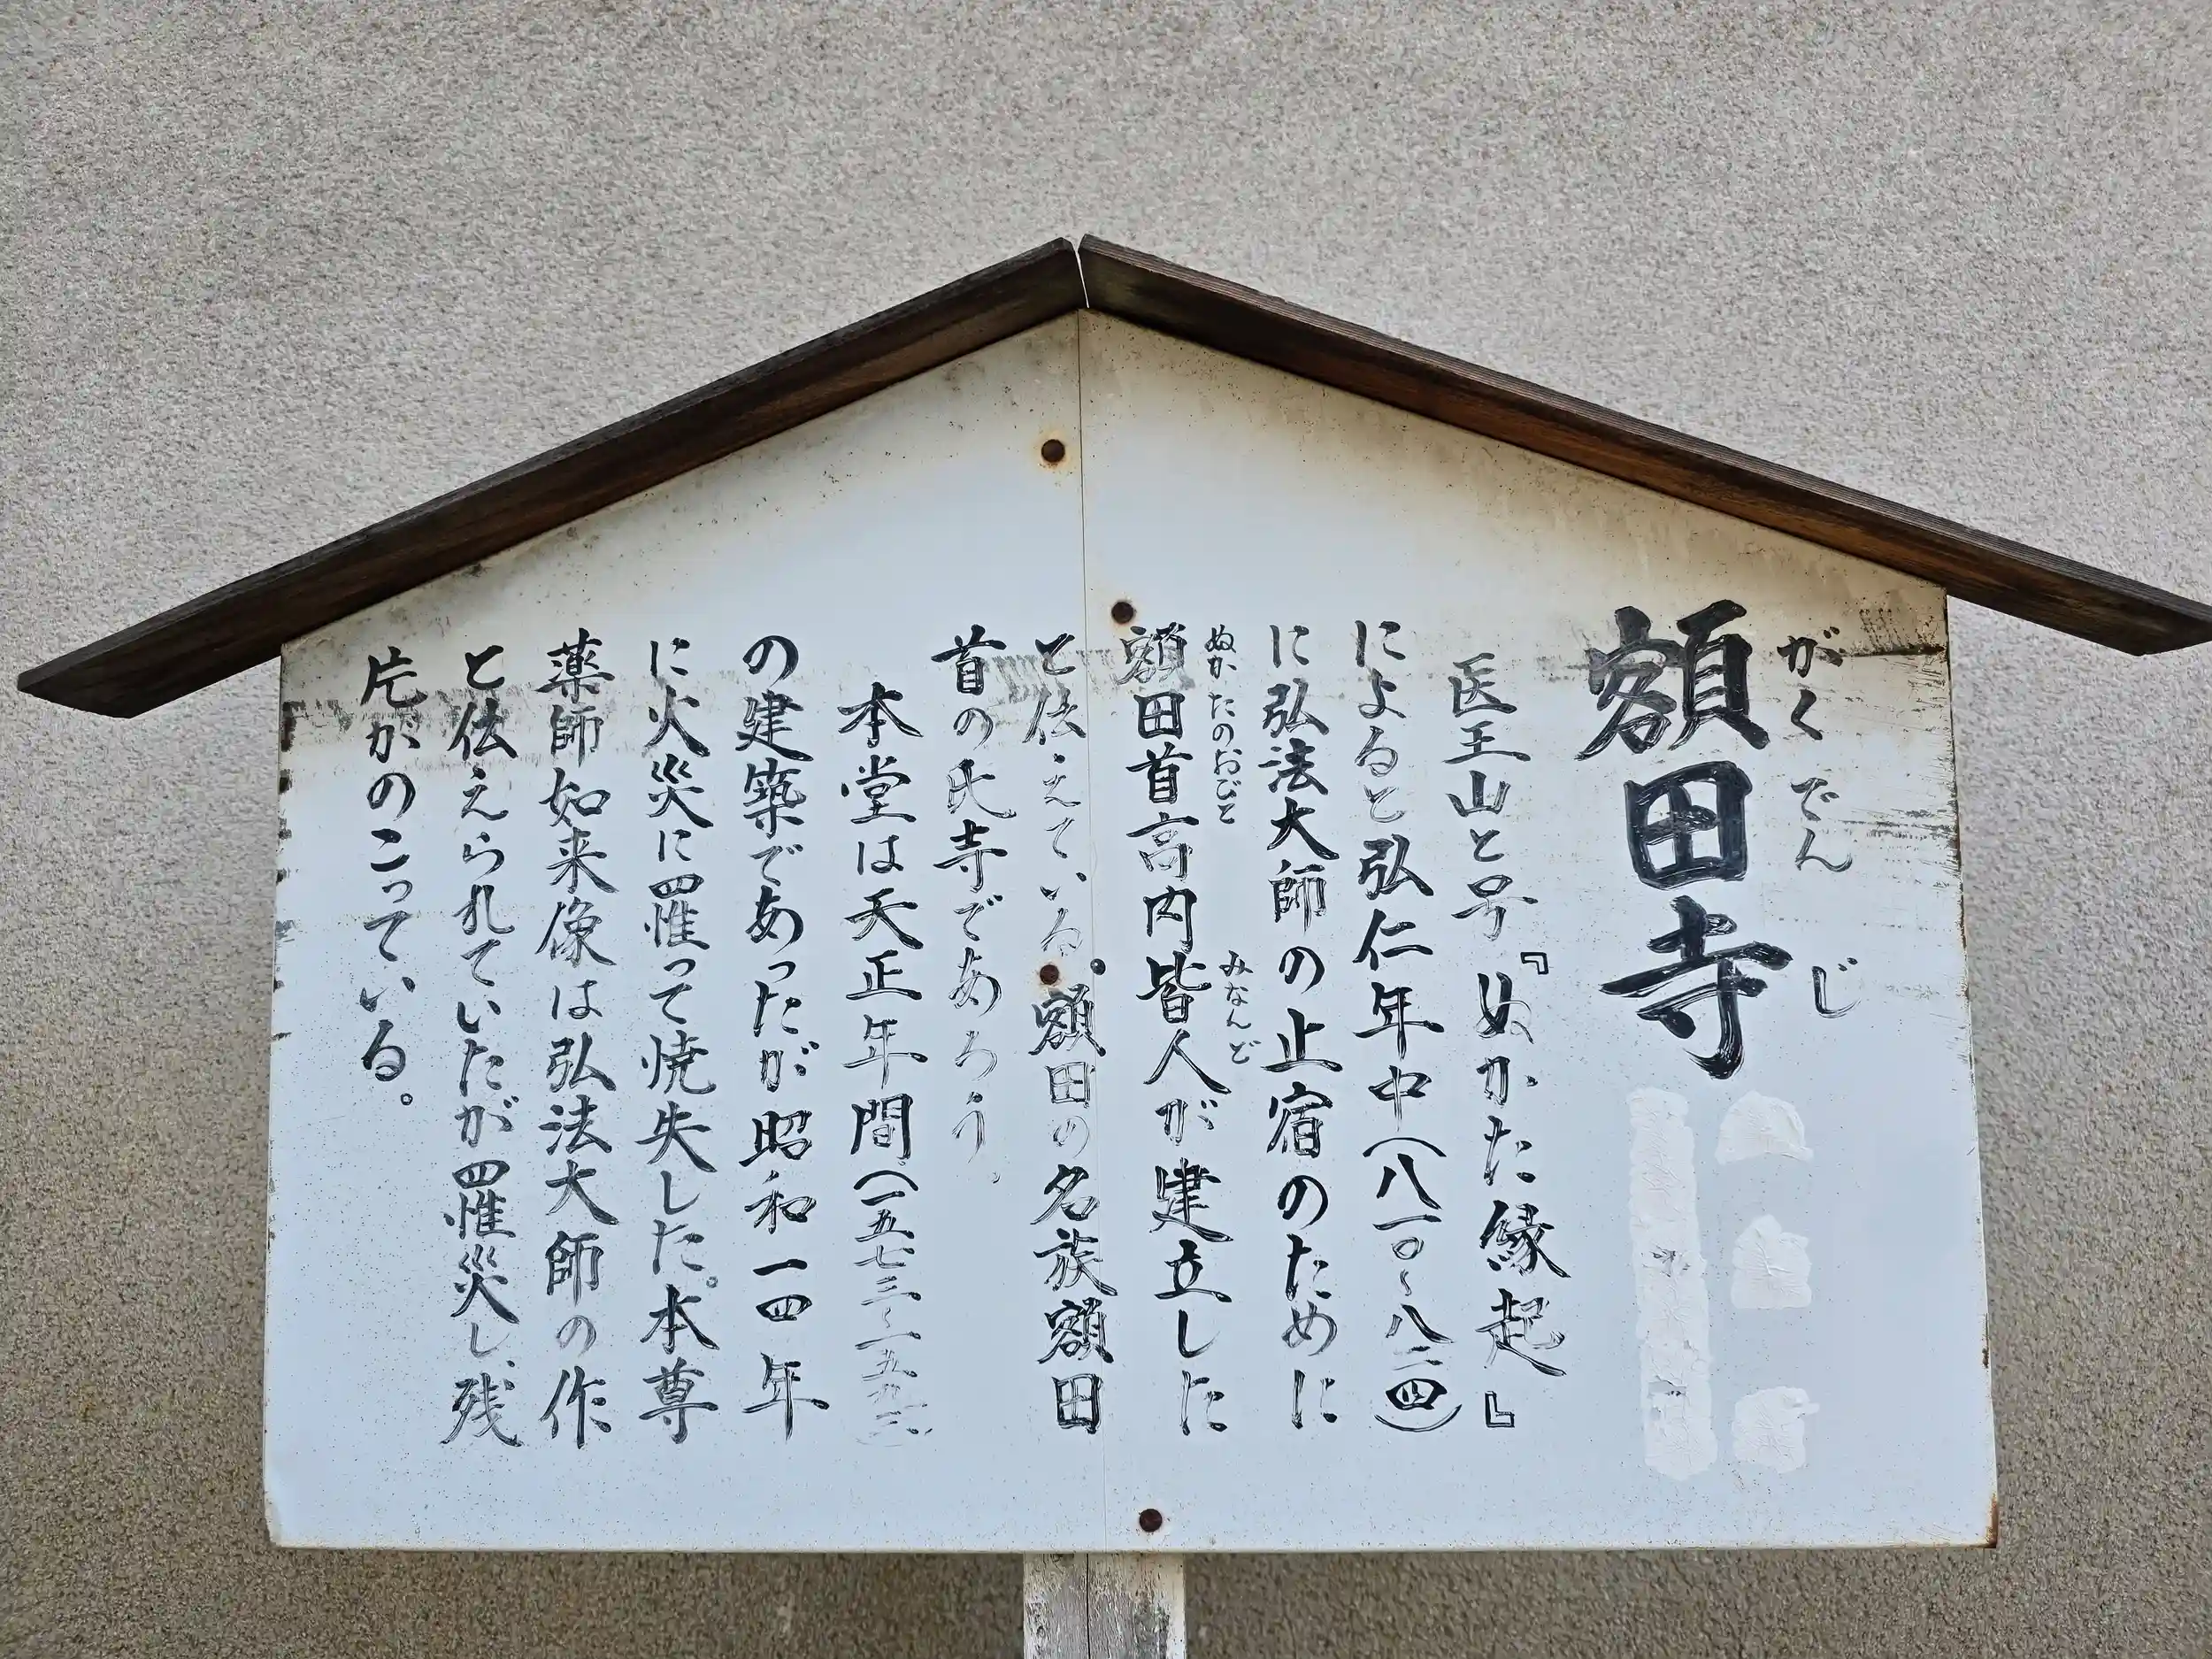 がくでんじ
額田寺
医王山と号『ぬかた縁起』
によると弘仁年中(八一〇~八二四)
に弘法大師の止宿のために
ぬかたのおびと みなんど
額田首高内皆人が建立した
と伝えている。額田の名族額田
首の氏寺であろう。
本堂は天正年間(一五七三~一五九二)
の建築であったが昭和一四年
に火災に罹って焼失した。本尊
薬師如来像は弘法大師の作
と伝えられていたが罹災し、残
片がのこっている。